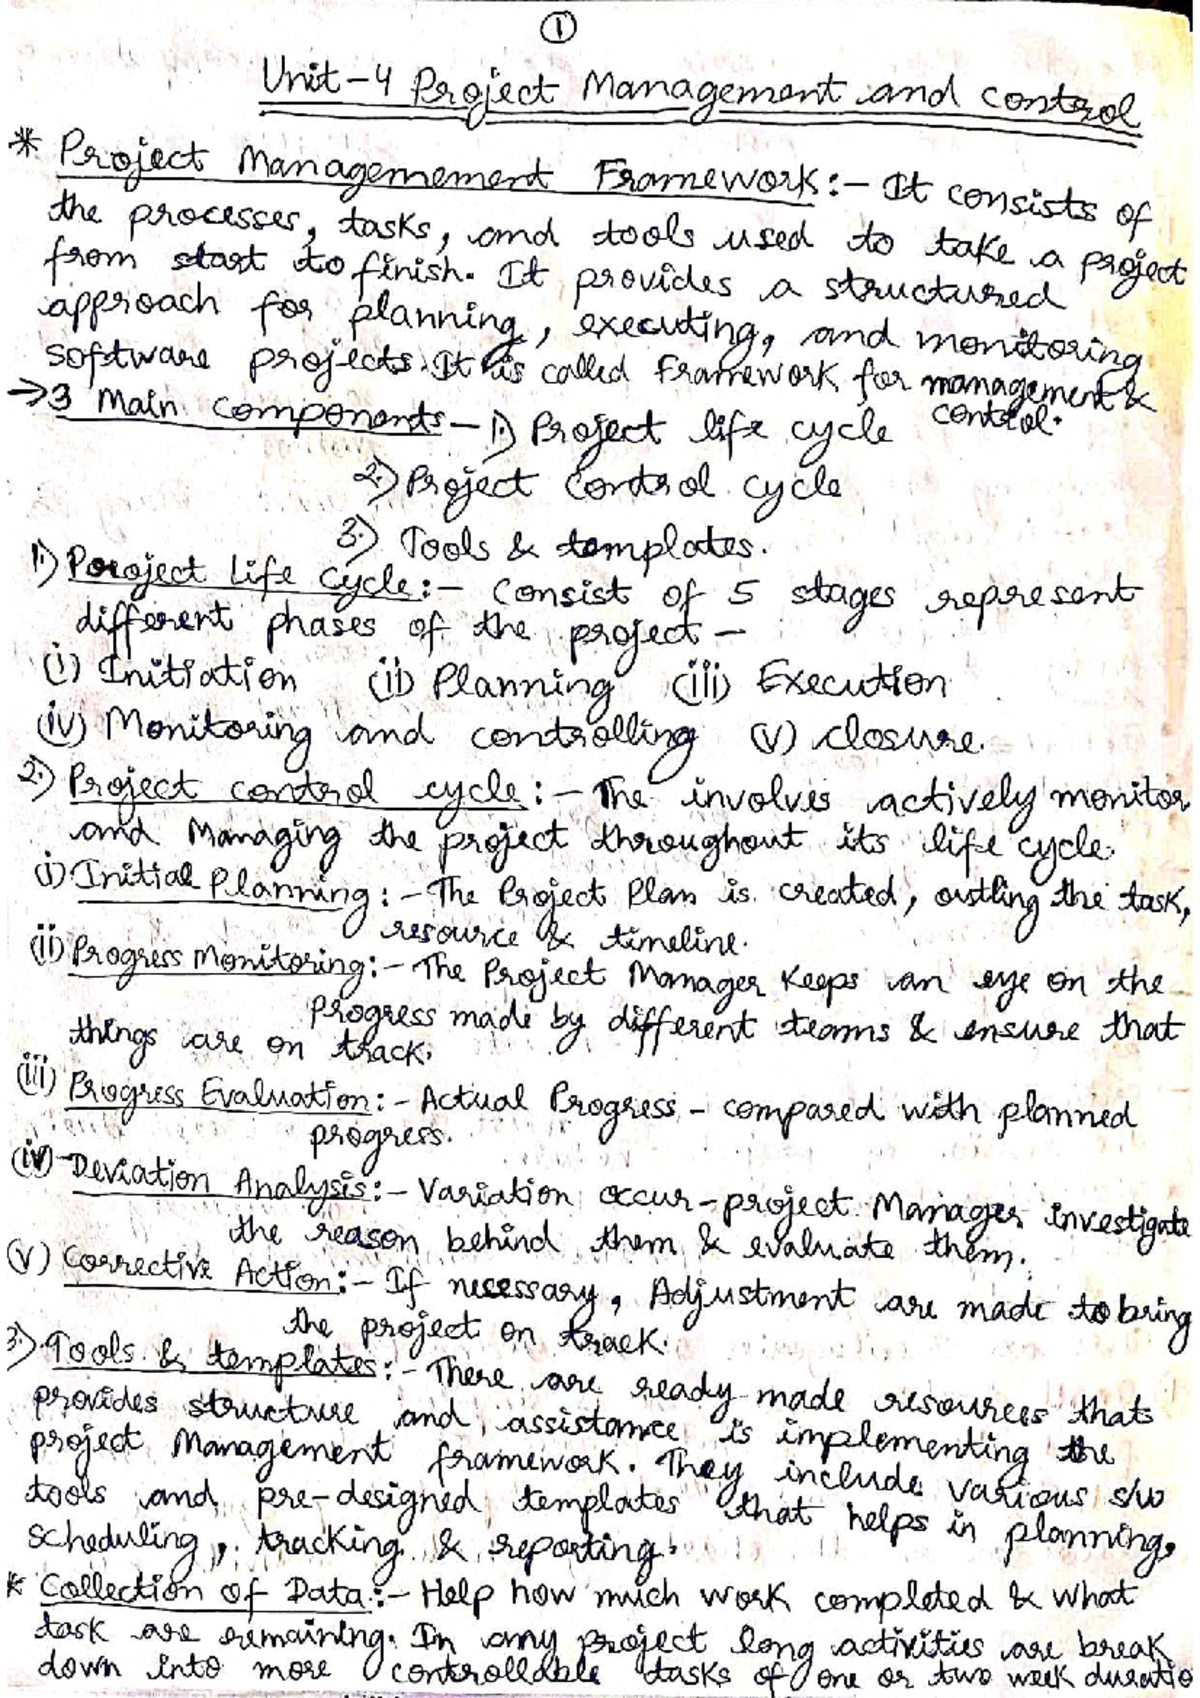 1
Unit-4 Project Management and control
* Project Managemement Framework:- It consists of
the processes, tasks, and tools used to take a project
from start to finish. It provides a structured
approach for planning, executing, and monitoring
software projects. It is called Framework for management &
control.
→3 Main components- 1.) Project life cycle
2.) Project control cycle
3.) Tools & templates.
1.) Poroject Life Cycle:- Consist of 5 stages represent
different phases of the project -
(i) Initiation (ii) Planning (iii) Execution
(iv) Monitoring and controlling (v) closure.
2.) Project control cycle:- The involves actively monitor
and Managing the project throughout its life cycle.
i) Initial Planning:- The Project Plan is created, outling the task,
resource & timeline.
(ii) Progress Monitoring:- The Project Manager Keeps an eye on the
progress made by different teams & ensure that
things are on track.
(iii) Progress Evaluation:- Actual Progress - compared with planned
progress.
(iv) Deviation Analysis:- Variation occur-project Manager investigate
the reason behind them & evaluate them.
(v) Corrective Action:- If necessary, Adjustment are made to bring
the project on track.
3.) Tools & templates:- There are ready-made resources thats
provides structure and assistance is implementing the
project Management framework. They include various s/w
tools and pre-designed templates that helps in planning,
scheduling, tracking & reporting.
* Collection of Data:- Help how much work completed & what
task are remaining. In any project long activities are break
down into more controllable tasks of one or two week duratio